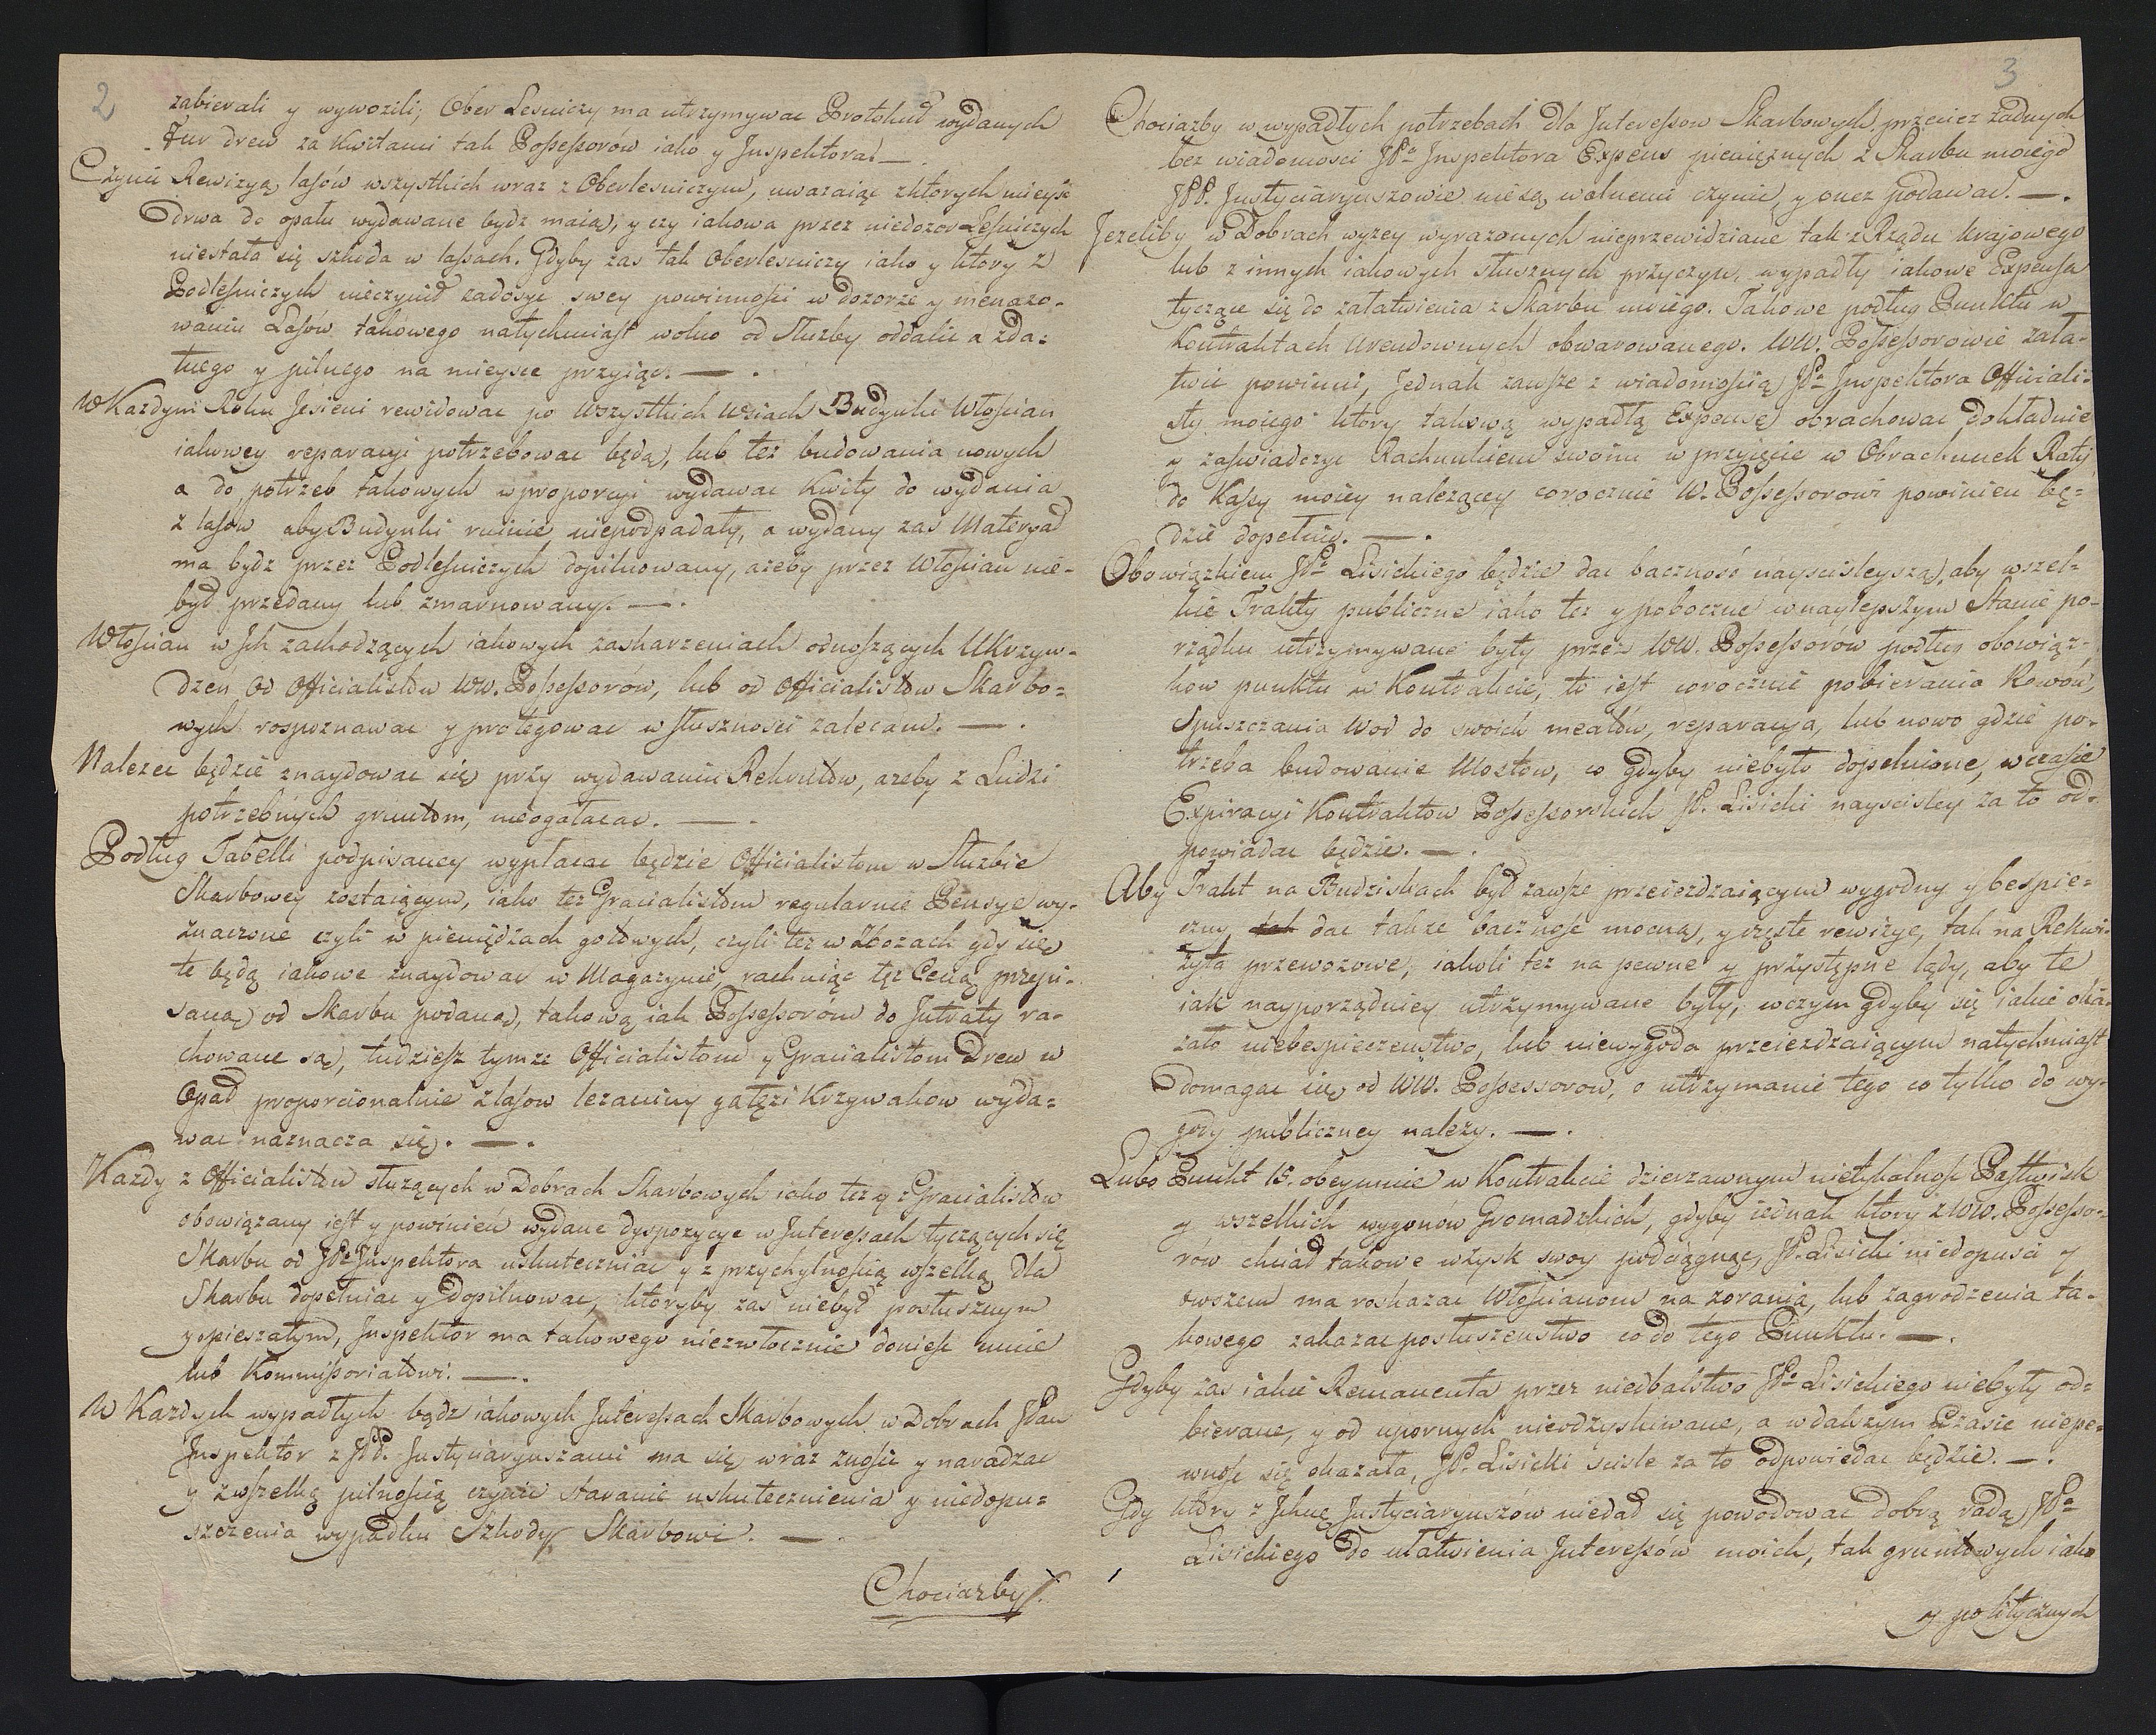 2
zabierali y wywozili; Ober Lesniczy ma utrzymywac Protokuł wydanych
Fur drew za Kwitami tak Possessorow iako y Inspektora. —.
Czynić Rewizyą lasów wszystkich wraz z Oberlesniczym, uwazaiąc z ktorych mieysc
drwa do opału wydawane bydz maią, y czy iakowa przez niedozor Leśniczych
niestała się szkoda w lasach. Gdyby zas tak Oberlesniczy iako y ktory z
Podleśniczych nieczynił zadosyc swey powinności w dozorze y menazo-
waniu Lasów takowego natychmiast wolno od Służby oddalic a zda-
tnego y pilnego na mieysce przyiąc. —.
W Kazdym Roku Jesieni rewidowac po Wszystkich Wsiach Budynki Włościan
iakowey reparacyi potrzebowac będą, lub też budowania nowych
a do potrzeb takowych w proporcyi wydawac Kwity do wydania
z lasow aby Budynki ruinie niepodpadały, a wydany zas Materyał
ma bydz przez Podleśniczych dopilnowany, azeby przez Włościan nie-
był przedany lub zmarnowany. —.
Włościan w Ich zachodzących iakowych zaskarzeniach odnoszących Ukrzyw-
dzen od Officialistów WW. Possessorów, lub od Officialistów Skarbo-
wych rospoznawac y protegowac w słuszności zalecam. —.
Nalezec będzie znaydowac się przy wydawaniu Rekrutów, azeby z Ludzi
potrzebnych gruntom, nieogałacac. —.
Podług Tabelli podpisaney wypłacac będzie Officialistom w Służbie
Skarbowey zostaiącym, iako też Gracialistom regularnie Pensye wy-
znaczone czyli w pieniędzach gotowych, czyli tez w Zbozach gdy się
te będą iakowe znaydowac w Magazynie, rachuiąc tęż Ceną przepi-
saną od Skarbu podaną, takową iak Possessorów do Intraty ra-
chowane są, tudziesz tymze Officialistom y Gracialistom Drew w
Opał proporcionalnie z lasow lezaniny gałęzi Krzywakow wyda-
wac naznacza się. —.
Kazdy z Officialistów służących w Dobrach Skarbowych iako tez y z Gracialistow
obowiązany iest y powinien wydane dyspozycye w Interessach tyczących się
Skarbu od JPa Inspektora uskuteczniac y z przychylnością wszelką dla
Skarbu dopełniac y dopilnowac, ktoryby zas niebył posłusznym
y opieszałym, Inspektor ma takowego niezwłocznie donieść mnie
lub Kommissoriatowi. —.
W Kazdych wypadłych bądz iakowych Interessach Skarbowych w Dobrach JPan
Inspektor z JPP. Justyciaryuszami ma się wraz znosic y naradzac
y z wszelką pilnością czynic staranie uskutecznienia y niedopu-
szczenia wypadku Szkody Skarbowi. —
Chociazby
3
Chociazby w wypadłych potrzebach dla Interessow Skarbowych, przeciez zadnych
bez wiadomosci JPa Inspektora Expens pieniężnych z Skarbu moiego
JPP. Justyciaryuszowie nie są wolnemi czynic, y onez podawac. —.
Jezeliby w Dobrach wyzey wyrazonych nieprzewidziane tak z Rządu Krajowego
lub z innych iakowych słusznych przyczyn, wypadły iakowe Expensa
tyczące się do załatwienia z Skarbu moiego. Takowe podług Punktu w
Kontraktach Arendownych obwarowanego. WW. Possessorowie zała-
twic powinni, Jednak zawsze z wiadomością JPa Inspektora Officiali-
sty moiego ktory takową wypadłą Expensę obrachowac dokładnie
y zaswiadczyc Rachunkiem swoim w przyięcie w Obrachunek Raty
do Kassy moiey nalezącey corocznie W. Possessorowi powinien bę-
dzie dopełnic. —.
Obowiązkiem JPa Lisickiego będzie dac bacznosc nayscisleyszą, aby wszel-
kie Trakty publiczne iako tez y poboczne w naylepszym Stanie po-
rządku utrzymywane były przez WW. Possessorów podług obowiąz-
kow punktu w Kontrakcie, to iest corocznie pobierania Rowów,
Spuszczania Wod do swoich mealów, reparacya, lub nowo gdzie po-
trzeba budowanie Mostów, co gdyby niebyło dopełnione, w czasie
Expiracyi Kontraktow Possessorskich JP. Lisicki nayscisley za to od-
powiadac będzie. —.
Aby Trakt na Budziskach był zawsze przeiezdzaiącym wygodny y bespie-
czny, dac takze bacznosc mocną, y częste rewizye, tak na Rekwi-
zyta przewozowe, iakoli tez na pewne y przystępne lądy, aby te
iak nayporządniey utrzymywane były, w czym gdyby się iakie oka-
zało niebespieczenstwo, lub niewygoda przeiezdzaiącym natychmiast
domagac się od WW. Possessorow, o utrzymanie tego co tylko do wy-
gody publiczney nalezy. —.
Lubo Punkt 15. obeymuie w Kontrakcie dzierzawnym nietykalność Pastwisk
y wszelkich wygonów Gromadzkich, gdyby iednak ktory z WW. Possesso-
rów chciał takowe w zysk swoy podciągnąc, JP. Lisicki niedopusci y
owszem ma roskazac Włościanom na zorania, lub zagrodzenia ta-
kowego zakazac posłuszenstwo co do tego Punktu. —.
Gdyby zas iakie Remanenta przez niedbalstwo JPa Lisickiego niebyły od-
bierane, y od upornych nieodzyskiwane, a w dalszym Czasie niepe-
wnosc się okazała, JP. Lisicki scisle za to odpowiedac będzie. —.
Gdy ktory z Ichmę Justyciaryuszów niedał się powodowac dobrą radą JPa
Lisickiego do ułatwienia Interessów moich, tak gruntowych iako
y politycznych